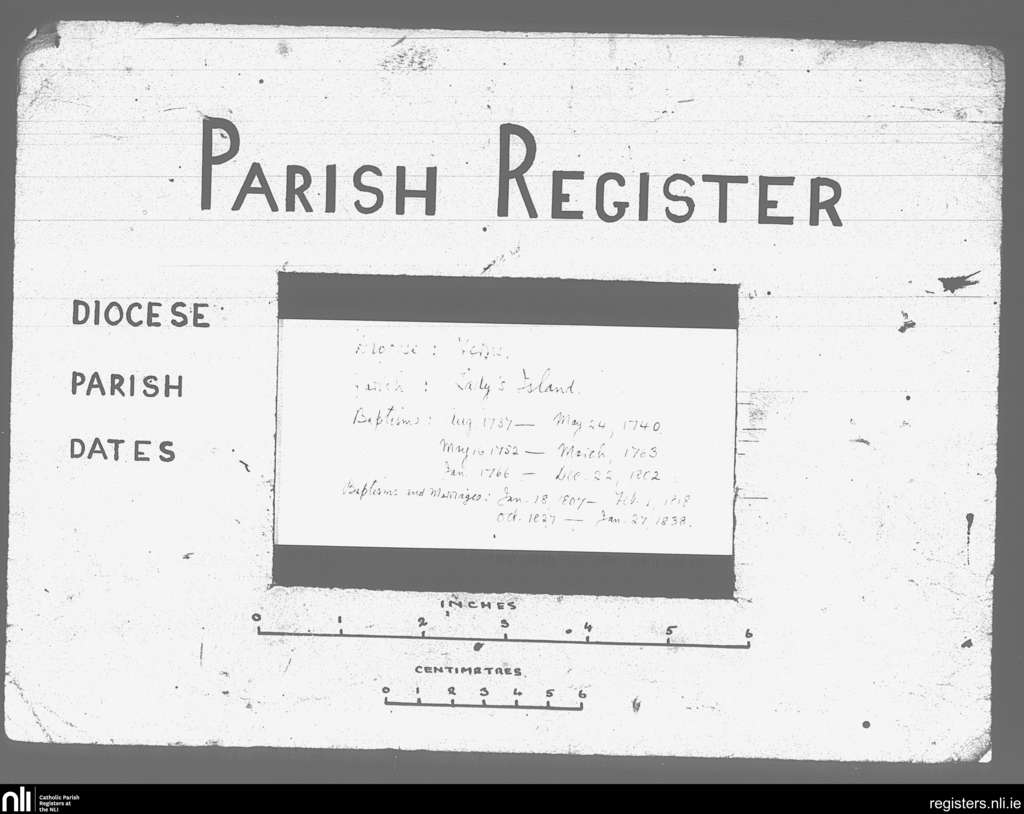 PARISH REGISTER
DIOCESE
PARISH
DATES
Diocese : Ferns.
Parish : Lady's Island.
Baptisms : Aug 1737 — May 24, 1740.
May 1752 — March, 1763
Jan. 1766 — Dec. 22, 1802.
Baptisms and Marriages : Jan. 18 1807 — Feb. 1, 1818
Oct. 1827 — Jan. 27 1838.
INCHES
0 1 2 3 4 5 6
CENTIMETRES.
0 1 2 3 4 5 6
nli
Catholic Parish
Registers at
the NLI
registers.nli.ie